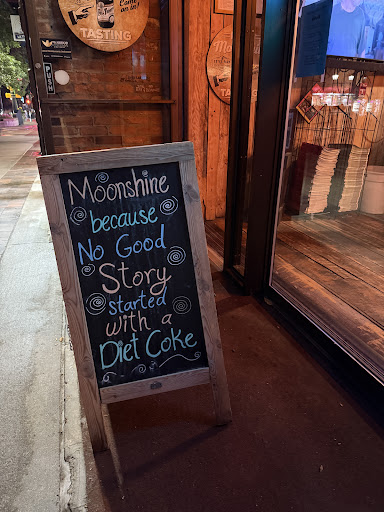 Come
on in!
TASTING
PUSH
Moonshine
because
No Good
Story
started
with a
Diet Coke